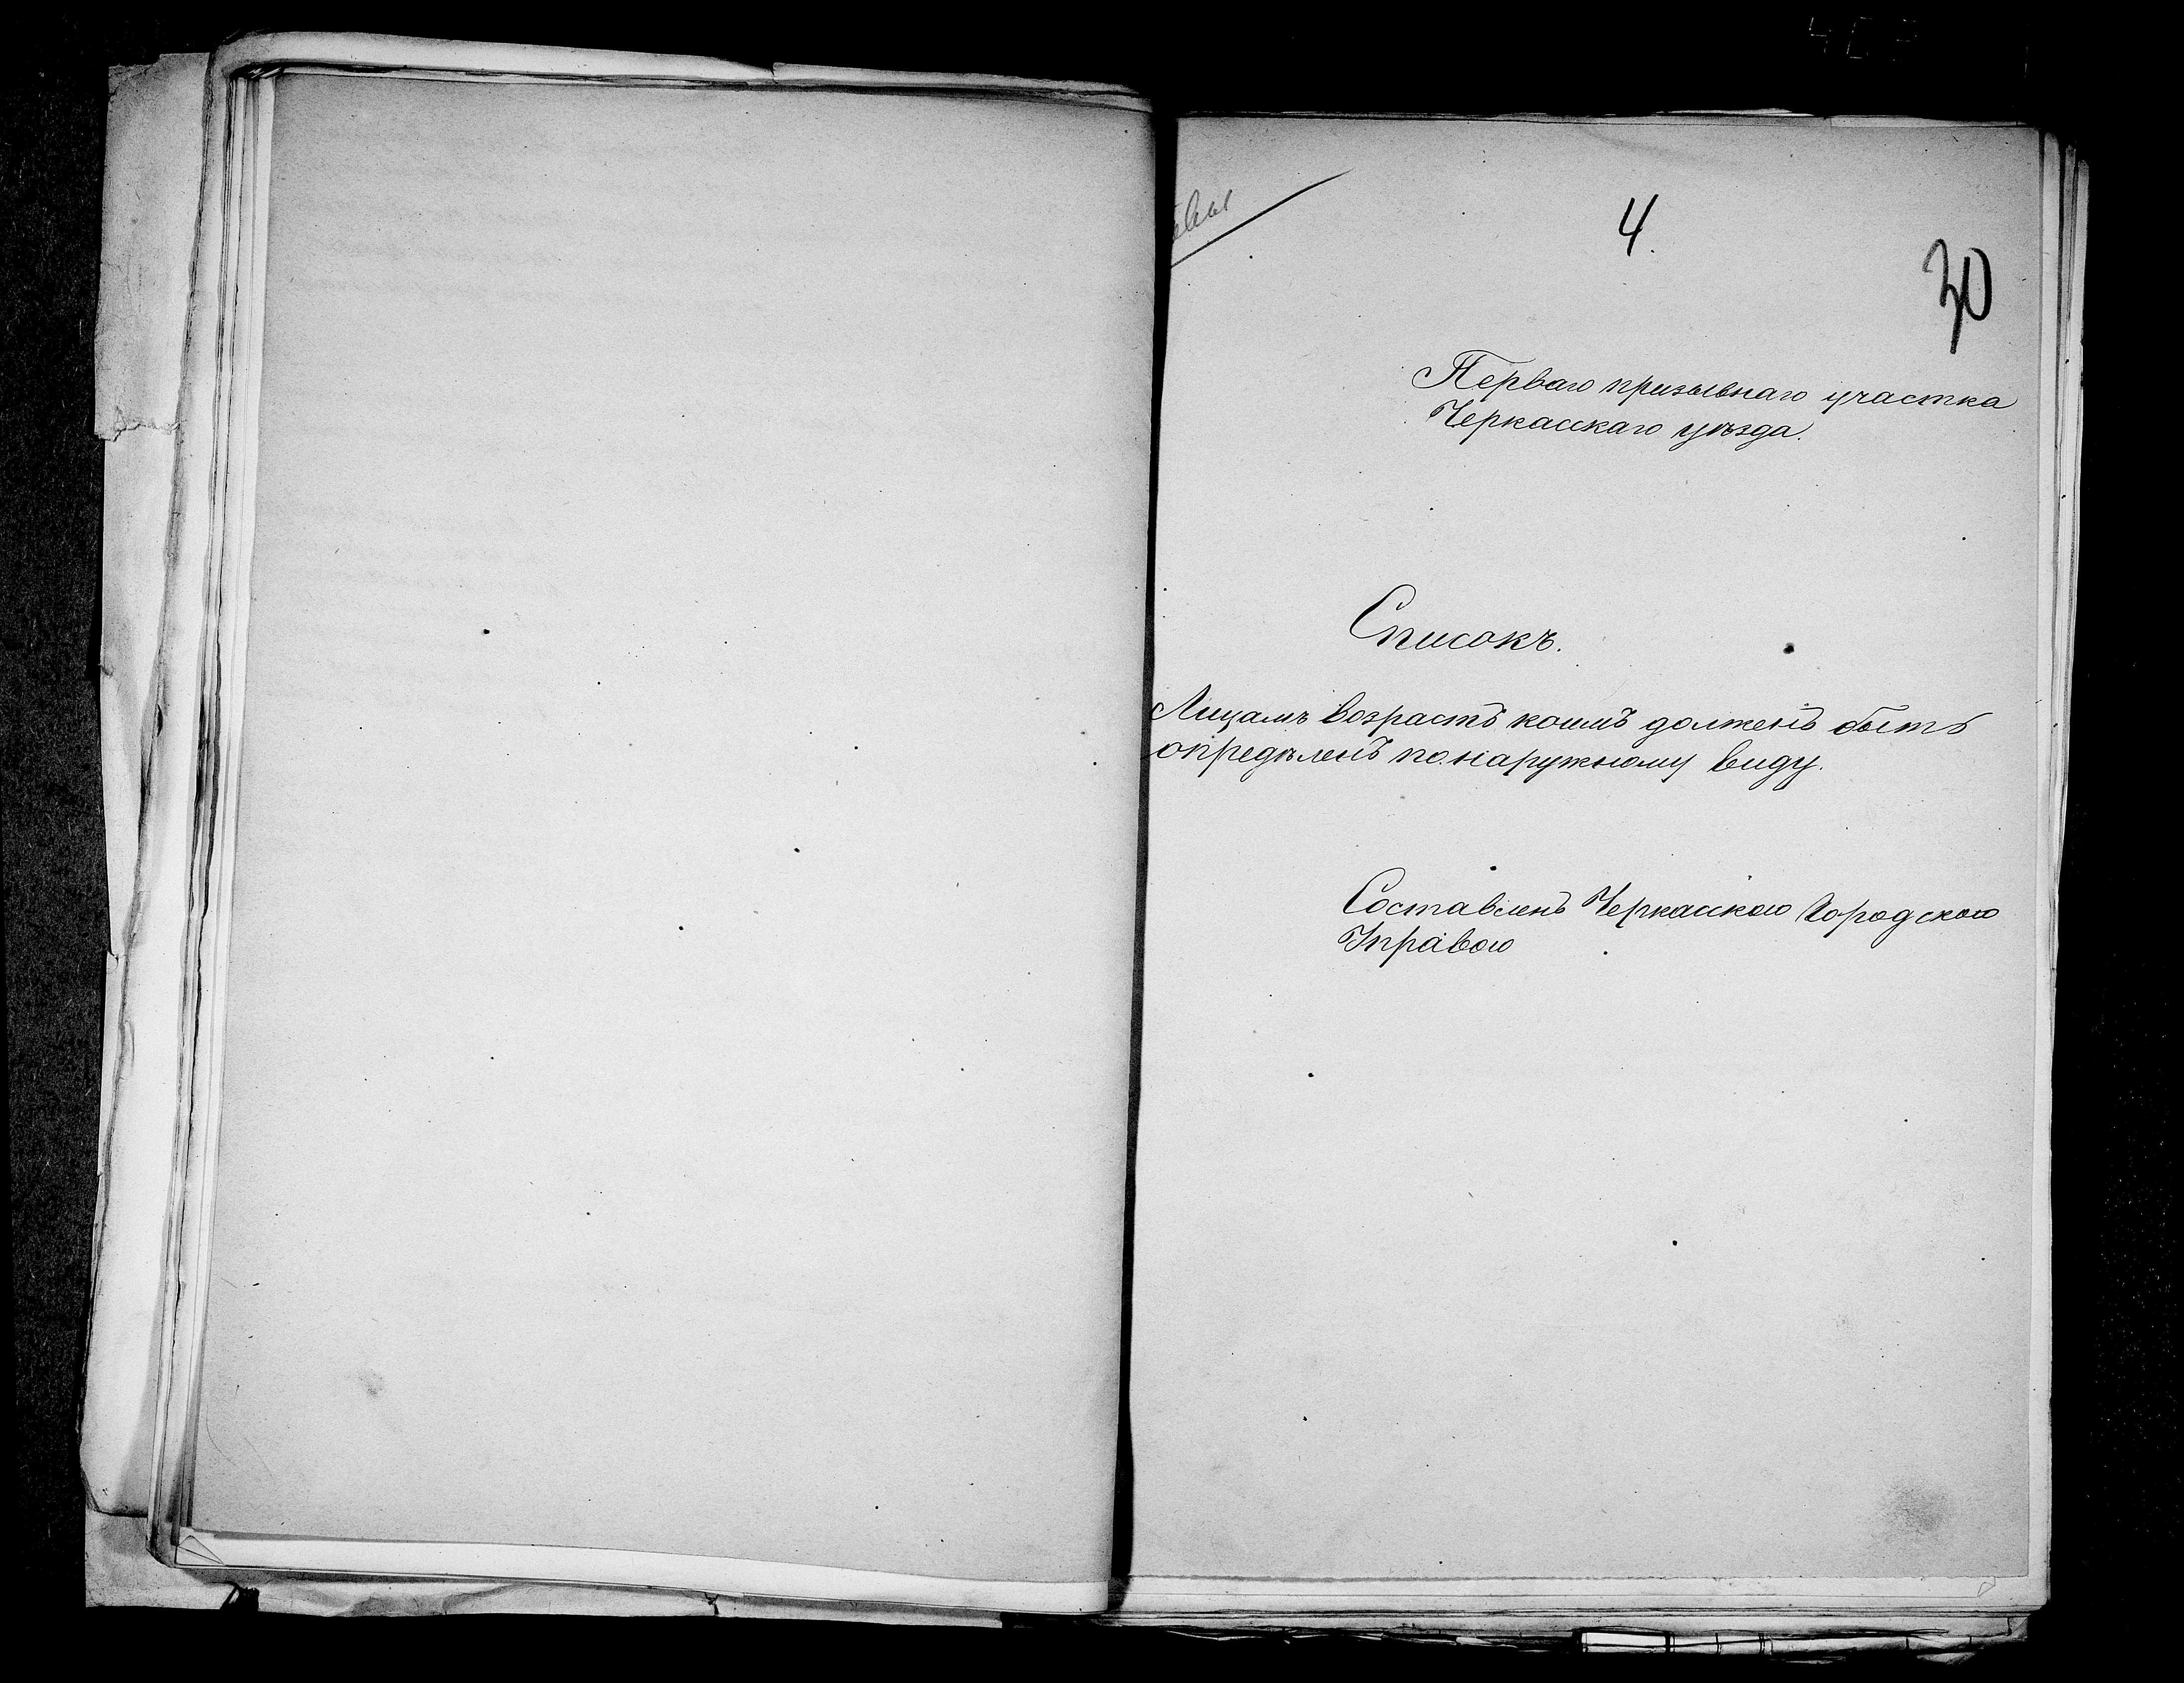 4.
30
Перваго призывнаго участка
Черкасскаго уѣзда.
Списокъ.
Лицамъ возрастъ коимъ долженъ быть
опредѣленъ по наружному виду.
Составленъ Черкасскою Городскою
Управою